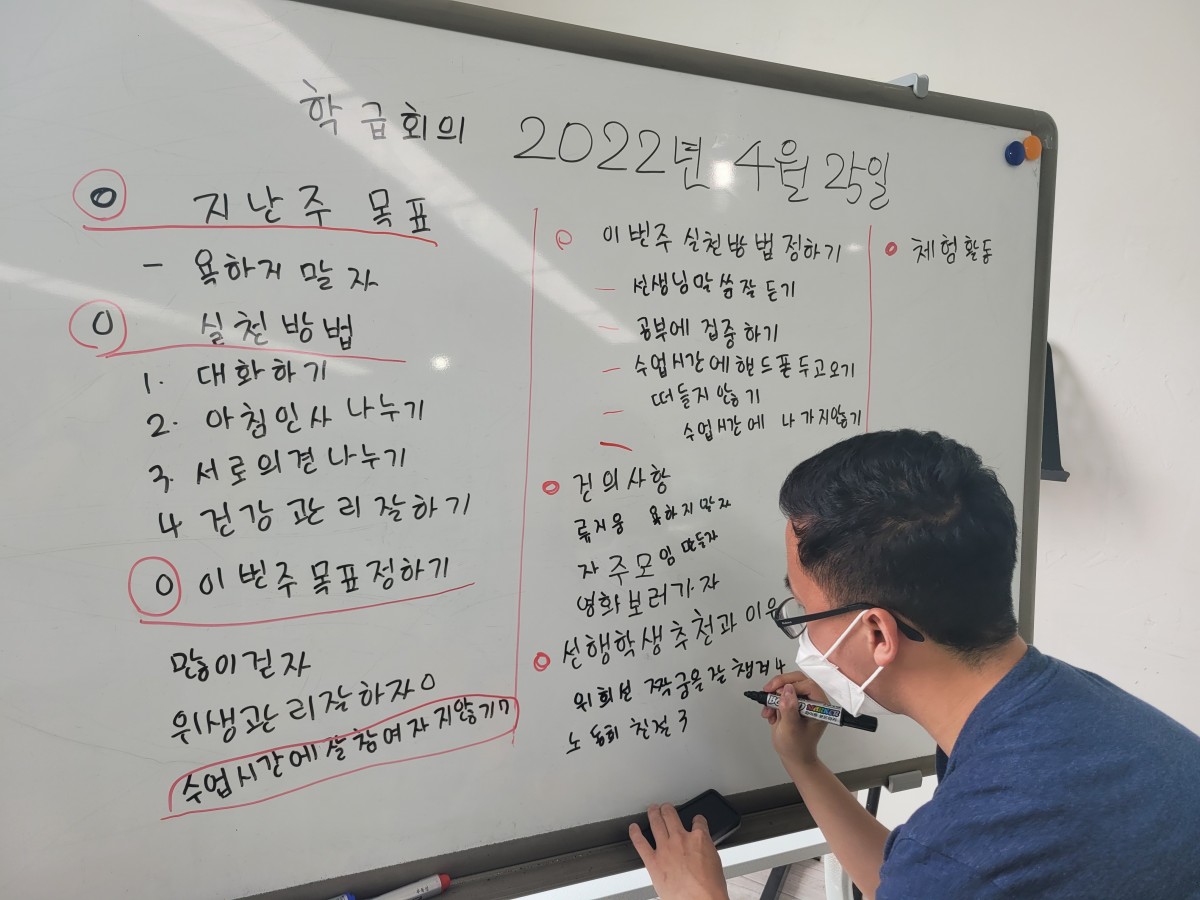 학급회의 2022년 4월 25일
지난주 목표
- 욕하지 말자
실천방법
1. 대화하기
2. 아침인사 나누기
3. 서로의견나누기
4 건강관리 잘하기
이번주 목표정하기
많이걷자
위생관리잘하자 0
수업시간에 살참여자지않기 7
이번주 실천방법정하기
- 선생님말씀잘듣기
- 공부에 집중하기
- 수업시간에핸드폰두고오기
- 떠들지않기
- 수업시간에 나가지않기
건의사항
류지웅 욕하지말자
자주모임만들자
영화보러가자
선행학생추천과 이유
위희선 짝궁을잘챙겨 4
노동희 친절 3
체험활동